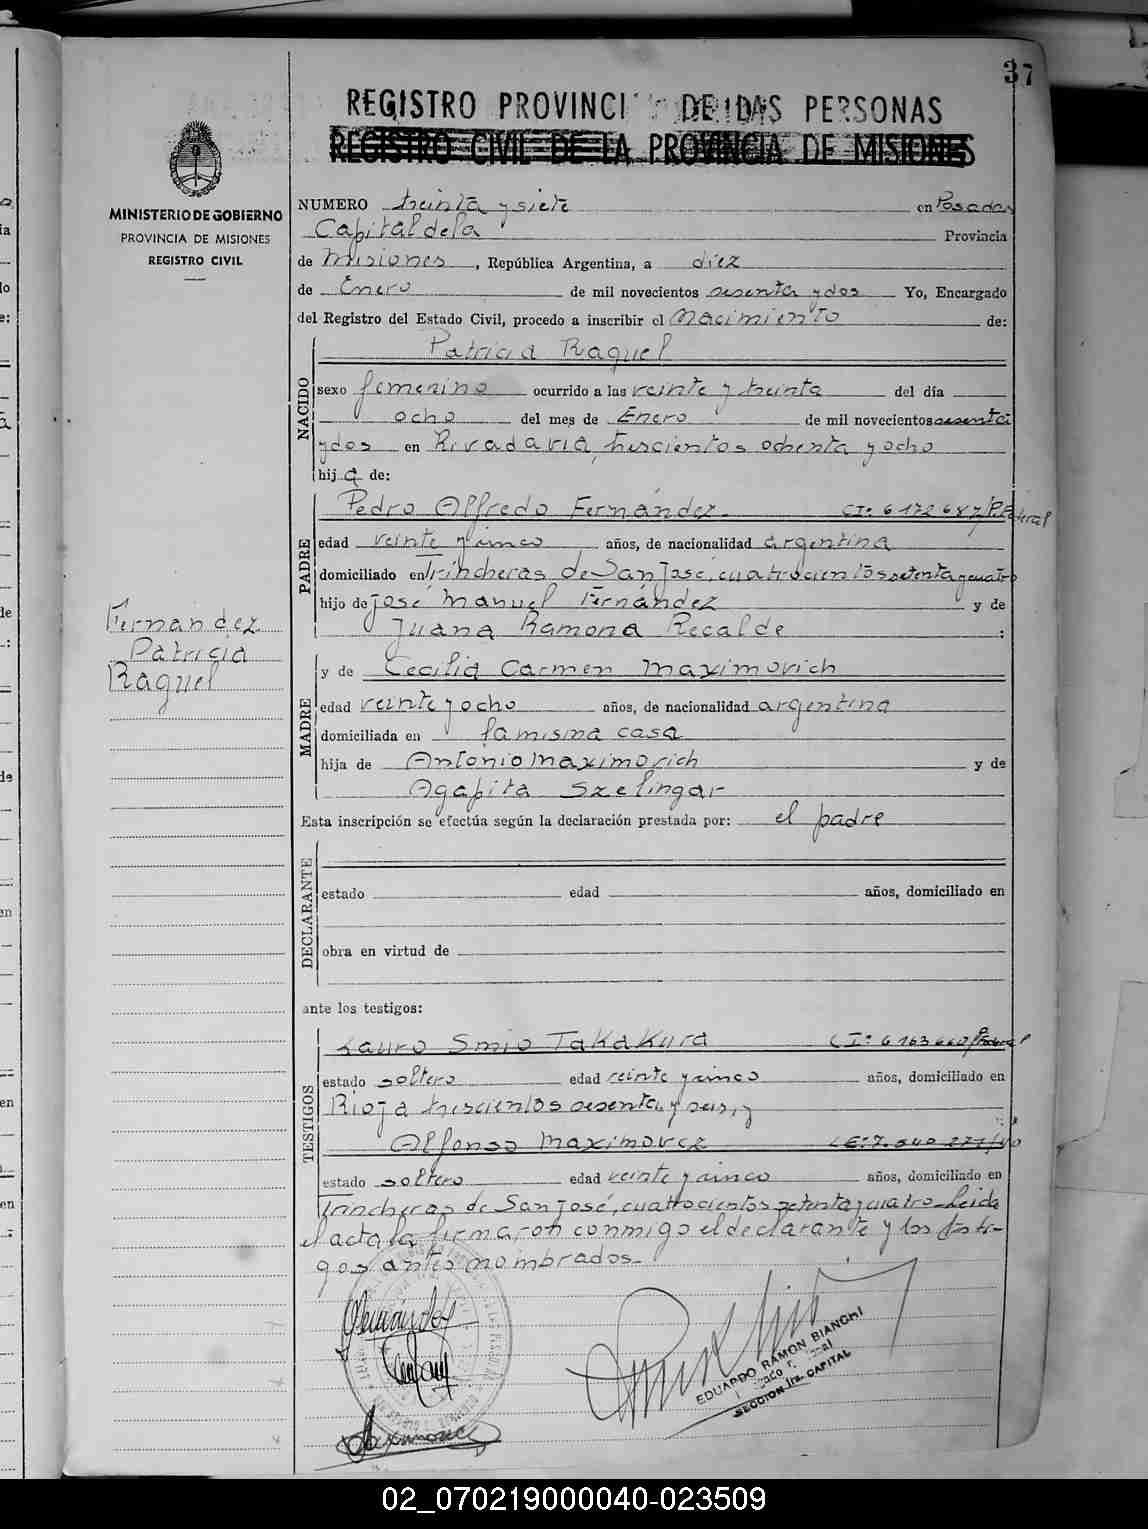 37
REGISTRO PROVINCI DE LAS PERSONAS
REGISTRO CIVIL DE LA PROVINCIA DE MISIONES
MINISTERIO DE GOBIERNO
PROVINCIA DE MISIONES
REGISTRO CIVIL
NUMERO treinta y siete en Posadas
Capital de la Provincia
de Misiones, República Argentina, a diez
de Enero de mil novecientos sesenta y dos Yo, Encargado
del Registro del Estado Civil, procedo a inscribir el Nacimiento de:
NACIDO
Patricia Raquel
sexo femenino ocurrido a las veinte y treinta del día
ocho del mes de Enero de mil novecientos sesenta
y dos en Rivadavia, trescientos ochenta y ocho
hija de:
PADRE
Pedro Alfredo Fernández CI: 6172687/P.Federal
edad veinte y cinco años, de nacionalidad argentina
domiciliado en Trincheras de San José, cuatrocientos setenta y cuatro
hijo de José Manuel Fernández y de
Juana Ramona Recalde :
Fernandez
Patricia
Raquel
MADRE
y de Cecilia Carmen Maximovich
edad veinte y ocho años, de nacionalidad argentina
domiciliada en la misma casa
hija de Antonio Maximovich y de
Agapita Szelingar
Esta inscripción se efectúa según la declaración prestada por: el padre
DECLARANTE
estado edad años, domiciliado en
obra en virtud de
ante los testigos:
TESTIGOS
Lauro Smio Takakura CI: 6163660/P.Federal
estado soltero edad veinte y cinco años, domiciliado en
Rioja trescientos sesenta y seis, y
Alfonso Maximovcz LE: 7.540.277/40
estado soltero edad veinte y cinco años, domiciliado en
Trincheras de San José, cuatrocientos setenta y cuatro. Leida
el acta la firmaron conmigo el declarante y los testi-
gos antes nombrados.-
Fernández
EDUARDO RAMON BIANCHI
SECCION 1ra. CAPITAL
02_070219000040-023509